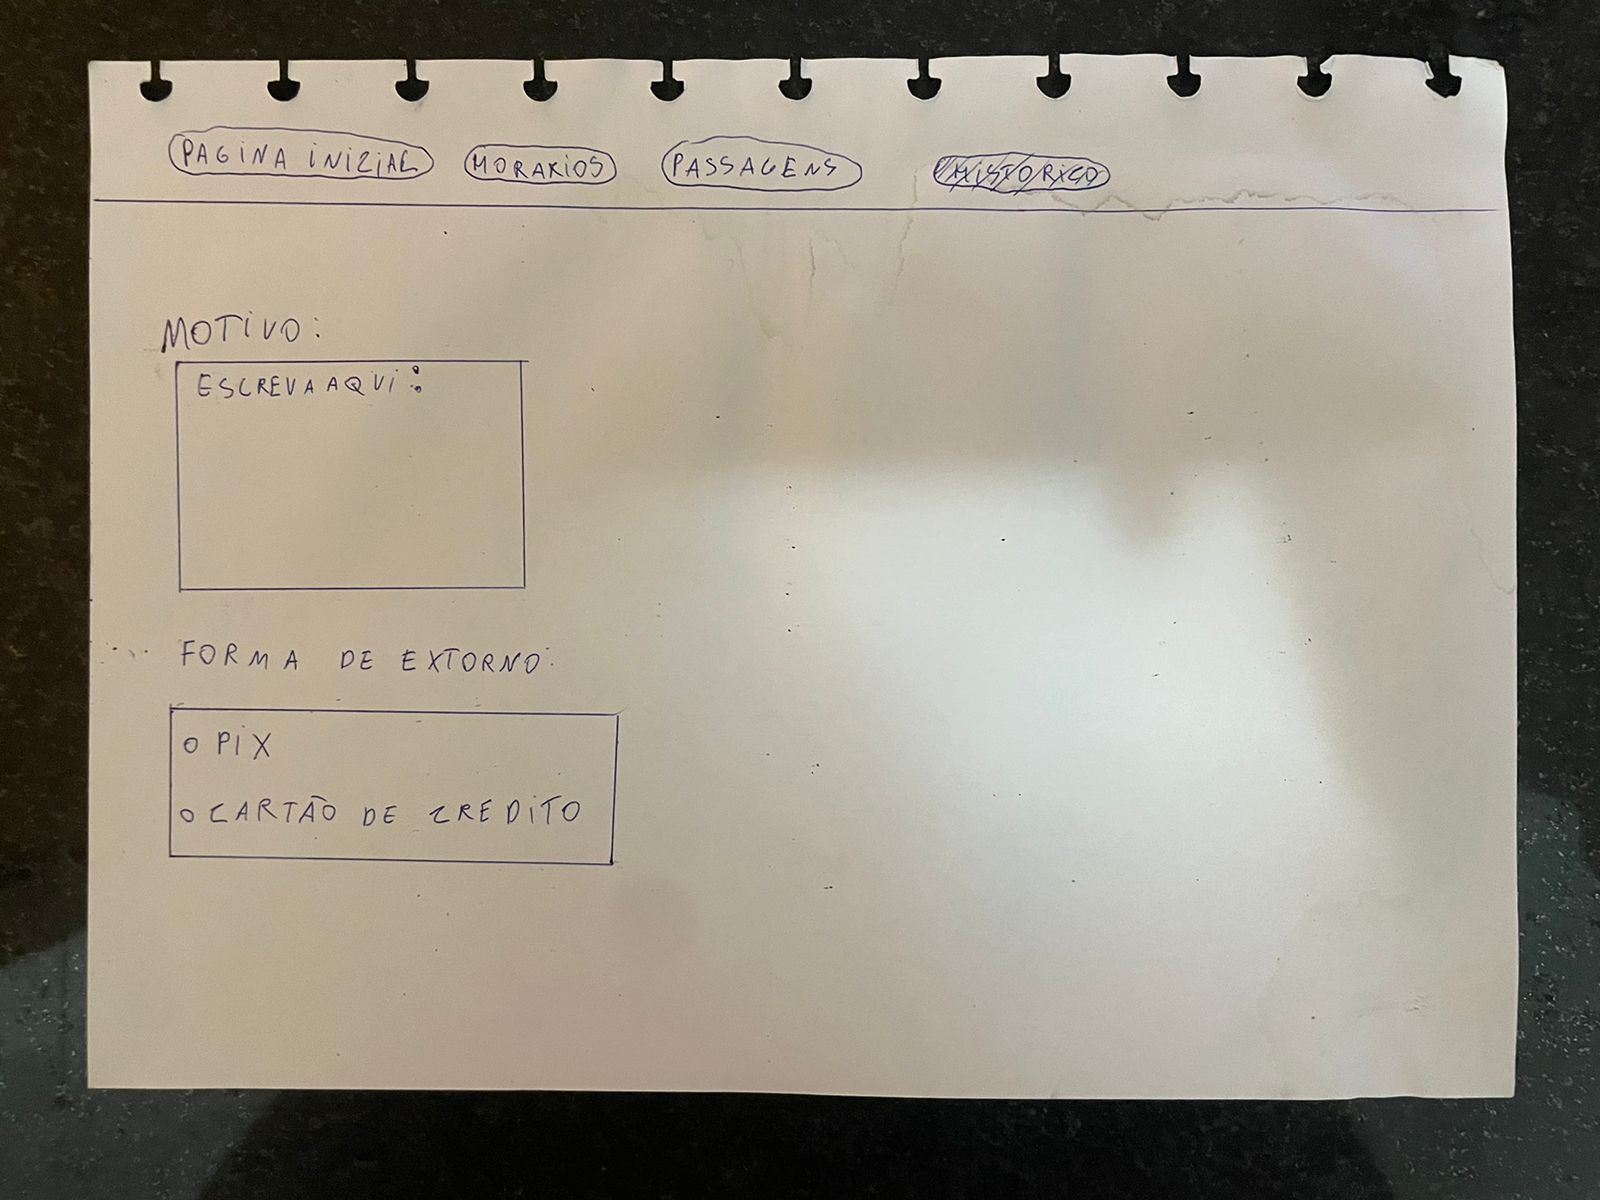 PAGINA INICIAL HORARIOS PASSAGENS HISTORICO
MOTIVO:
ESCREVA AQUI:
FORMA DE EXTORNO:
O PIX
O CARTÃO DE CREDITO